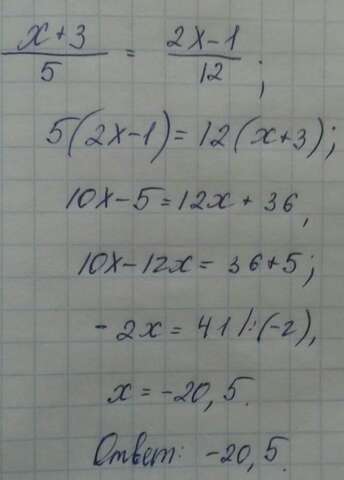 x+3/5 = 2x-1/12;
5(2x-1)=12(x+3);
10x-5=12x+36,
10x-12x=36+5;
-2x=41 |:(-2),
x=-20,5.
Ответ: -20,5.